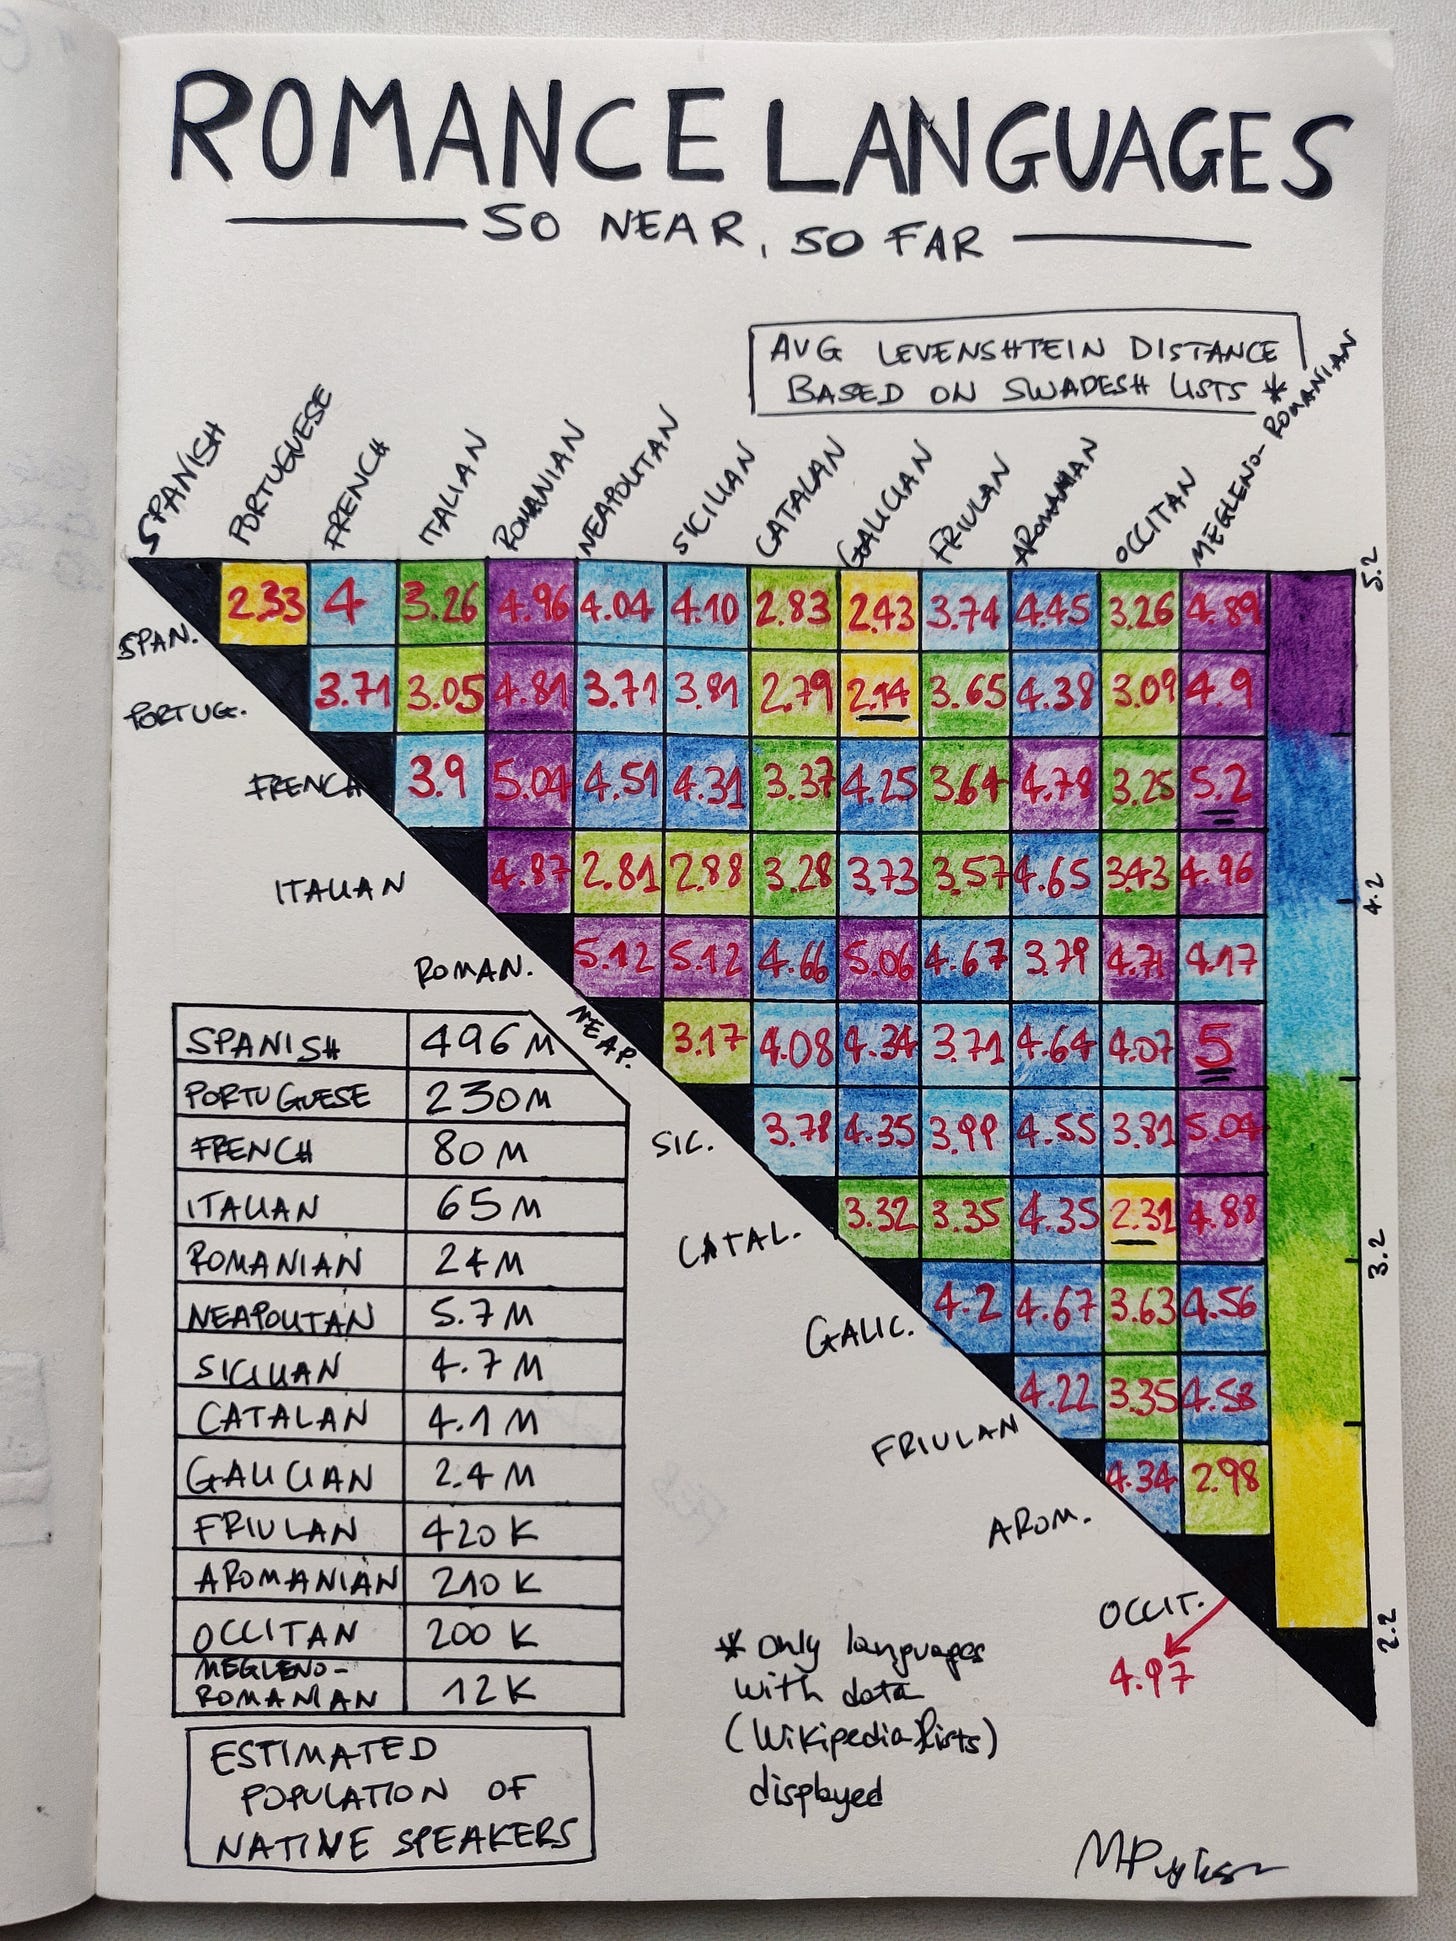 ROMANCE LANGUAGES
SO NEAR, SO FAR
AVG LEVENSHTEIN DISTANCE
BASED ON SWADESH LISTS *
SPANISH PORTUGUESE FRENCH ITALIAN ROMANIAN NEAPOLITAN SICILIAN CATALAN GALICIAN FRIULAN AROMANIAN OCCITAN MEGLENO-ROMANIAN
SPAN. 2.33 4 3.26 4.96 4.04 4.10 2.83 2.43 3.74 4.45 3.26 4.89
PORTUG. 3.71 3.05 4.81 3.71 3.81 2.79 2.14 3.65 4.38 3.09 4.9
FRENCH 3.9 5.04 4.51 4.31 3.37 4.25 3.64 4.78 3.25 5.2
ITALIAN 4.87 2.81 2.88 3.28 3.73 3.57 4.65 3.43 4.96
ROMAN. 5.12 5.12 4.66 5.06 4.67 3.79 4.71 4.17
NEAP. 3.17 4.08 4.34 3.71 4.64 4.07 5
SIC. 3.78 4.35 3.99 4.55 3.81 5.04
CATAL. 3.32 3.35 4.35 2.31 4.88
GALIC. 4.2 4.67 3.63 4.56
FRIULAN 4.22 3.35 4.58
AROM. 4.34 2.98
OCCIT.
4.97
5.2
4.2
3.2
2.2
SPANISH 496 M
PORTUGUESE 230 M
FRENCH 80 M
ITALIAN 65 M
ROMANIAN 24 M
NEAPOLITAN 5.7 M
SICILIAN 4.7 M
CATALAN 4.1 M
GALICIAN 2.4 M
FRIULAN 420 K
AROMANIAN 210 K
OCCITAN 200 K
MEGLENO-
ROMANIAN 12 K
ESTIMATED
POPULATION OF
NATIVE SPEAKERS
* Only languages
with data
(Wikipedia lists)
displayed